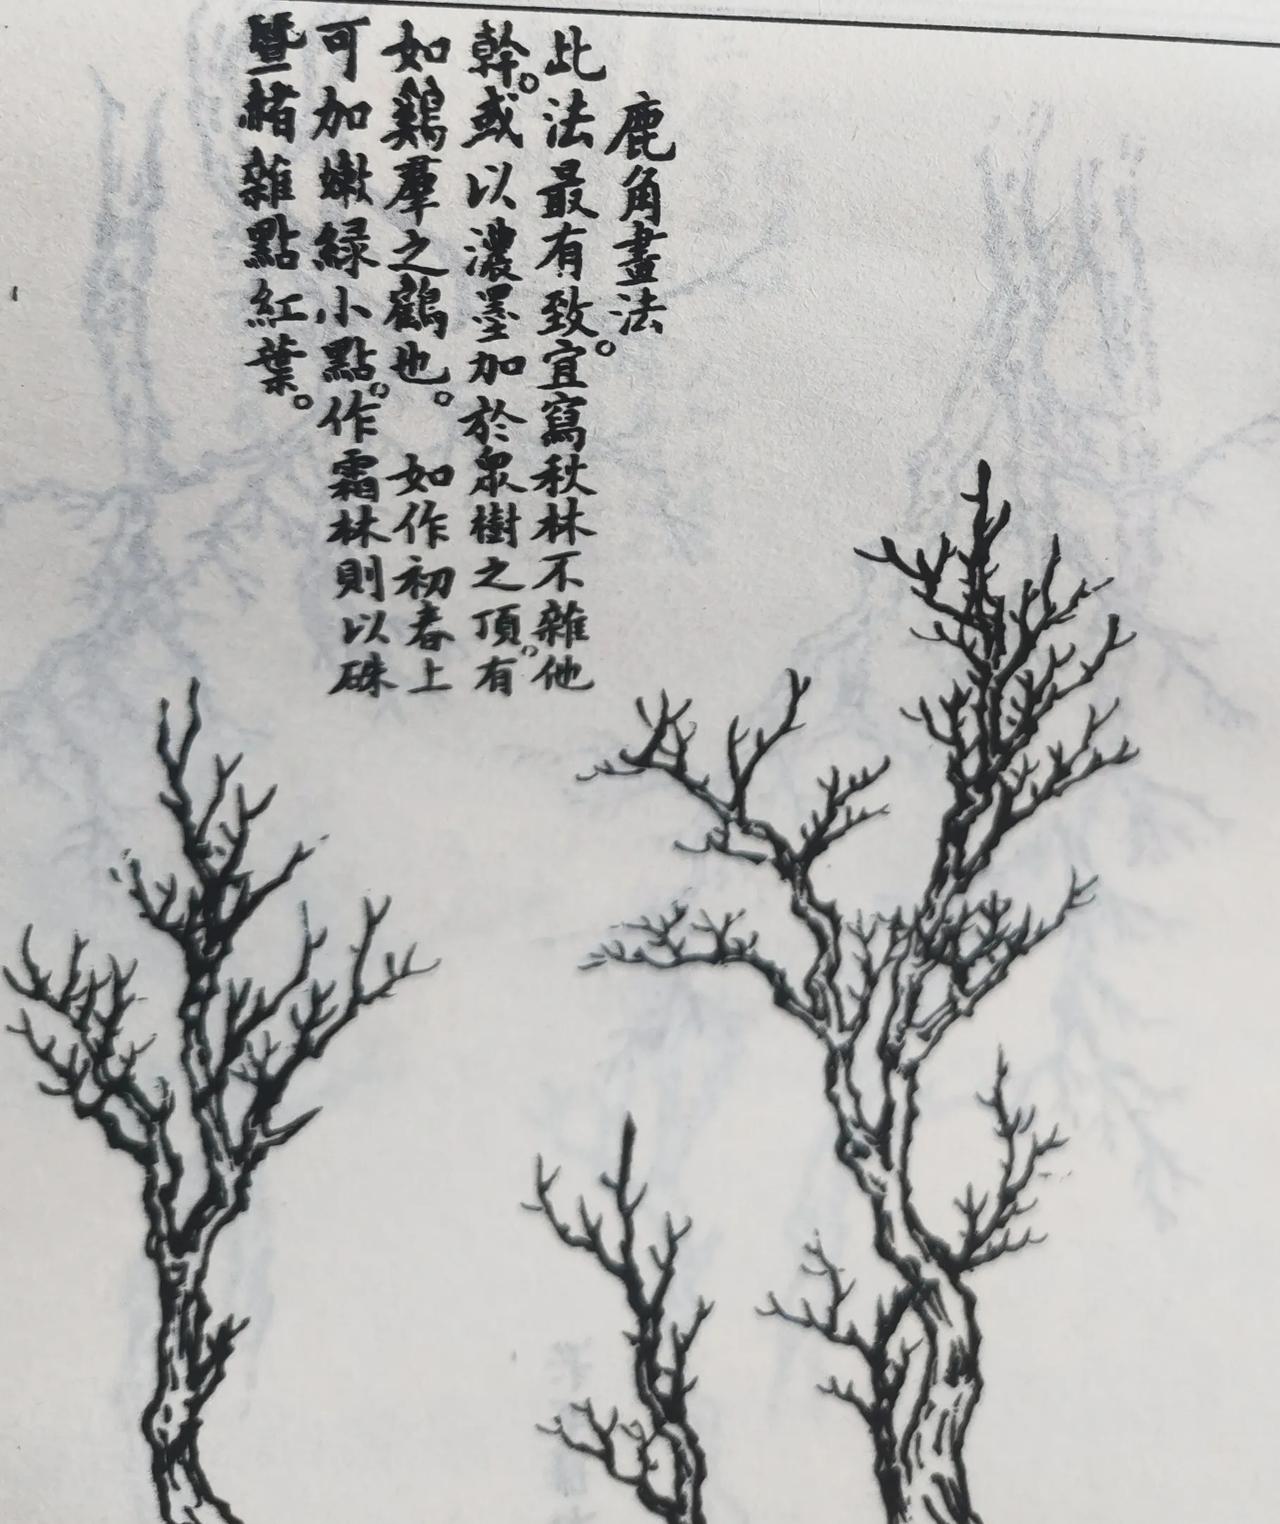 鹿角畫法
此法最有致。宜寫秋林不雜他
幹。或以濃墨加於眾樹之頂。有
如鷄羣之鶴也。 如作初春上
可加嫩緑小點。作霜林則以硃
暨赭雜點紅葉。